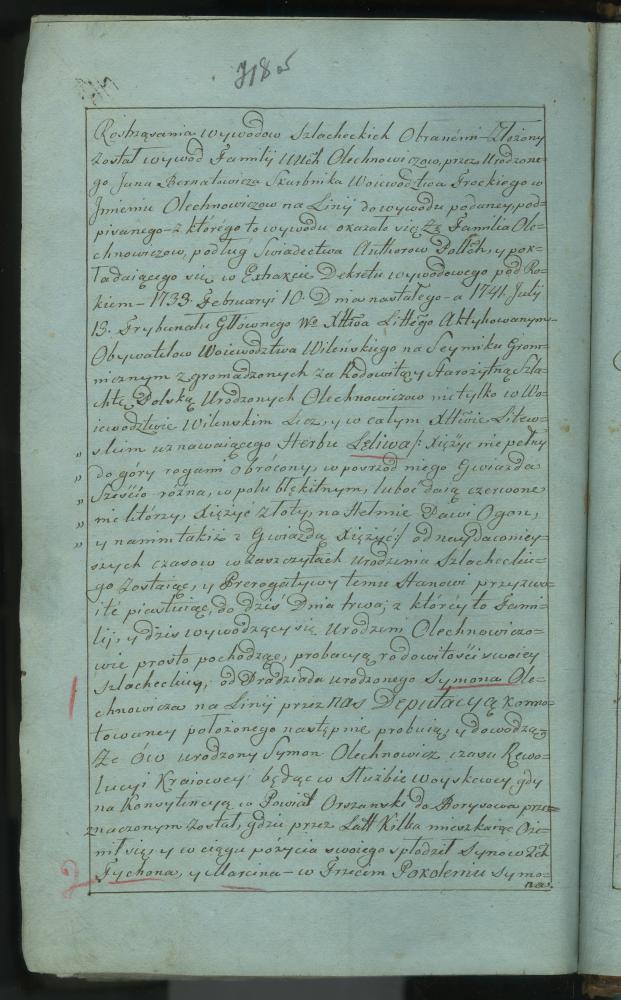 7185
Rostrząsania wywodow Szlacheckich Obranémi – Złożony
został wywód Familij UUch Olechnowiczow, przez Urodzone=
go Jana Bernatowicza Skarbnika Woiewodztwa Trockiego w
Jmieniu Olechnowiczow na Linij do wywodu podaney, pod=
pisanego – z którégo to wywodu okazało się, Że Familia Ole=
chnowiczow, podług Swiadectwa Authorow Polsch, y pok=
ładaiącego się w Extrakcie Dekretu wywodowego pod Ro=
kiem – 1733 Februaryi 10. Dnia nastałego – a 1741. Julij
13. Trybunału Głłównego W° Xttwa Littégo Aktykowanym –
Obywatelow Woiewództwa Wileńskiego na Seymiku Grom=
nicznym zgromadzonych za Rodowitą y Starożytną Szla=
chtę Polską Urodzonych Olechnowiczow nie tylko w Wo=
iewodztwie Wilenskim Lecz, y w całym Xttwie Litew=
skim uznawaiącego Herbu Leliwa /: Xiężyc nie pełny
„ do góry rogami obrócony, w posrzod niego Gwiazda
„ Sześcio rożna, w polu błękitnym, luboć daią czerwone
„ nie litórzy, Xiężyc złoty, na Hełmie Pawi Ogon,
„ y na nim takiż z Gwiazdą Xiężyć :/ od naydawniey=
szych czasow w zaszczytach Urodzenia Szlacheckie=
go zostaiąc, y Prerogatywy temu Stanowi przyzwo=
ité piastuiąc, do dziś Dnia trwa; z którey to Fami=
lij, y dzis wywodzący się Urodzeni Olechnowiczo=
wie prosto pochodzą, probacyą rodowitości swoiey
1 Szlacheckiey, od Pradziada urodzonego Symona Ole=
chnowicza na Linij przez nas Deputacyą konno=
towaney położonego następnie probuią, y dowodzą
Że ów urodzony Symon Olechnowicz czasu Rewo=
lucyi Kraiowey będąc w Służbie woyskowey, gdy
na Konsystencyą w Powiat Orszanski do Borysowa prze=
znaczonym został, gdzie przez Latt Kilka mieszkaiąc Oże=
nił się, y w ciągu pożycia swoiego spłodził Synow 2ch
2 Tychona, y Marcina – w Trzecim Pokoleniu Symo=
na.